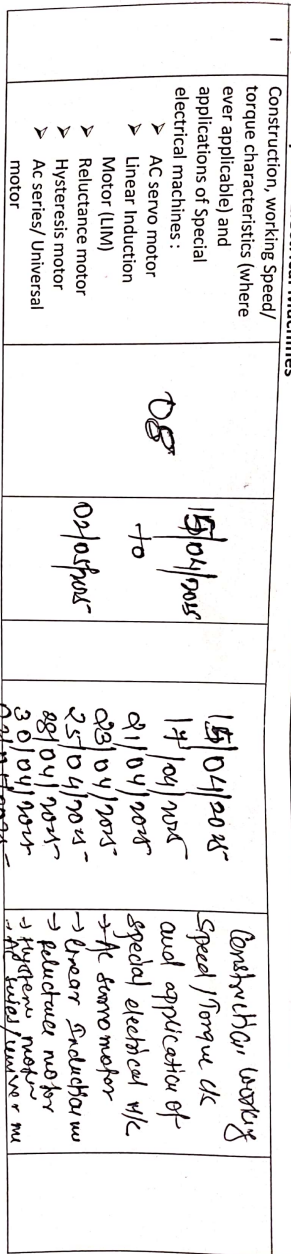 1
Construction, working Speed/
torque characteristics (where
ever applicable) and
applications of Special
electrical machines :
➢ AC servo motor
➢ Linear Induction
Motor (LIM)
➢ Reluctance motor
➢ Hysteresis motor
➢ Ac series/ Universal
motor
08
15/04/2025
to
02/05/2025
15/04/2025
17/04/2025
21/04/2025
23/04/2025
25/04/2025
28/04/2025
30/04/2025
Construction, working
Speed/Torque c/s
and application of
special electrical m/c
→ Ac servo motor
→ linear Induction m
→ Reluctance motor
→ Hysteresis motor